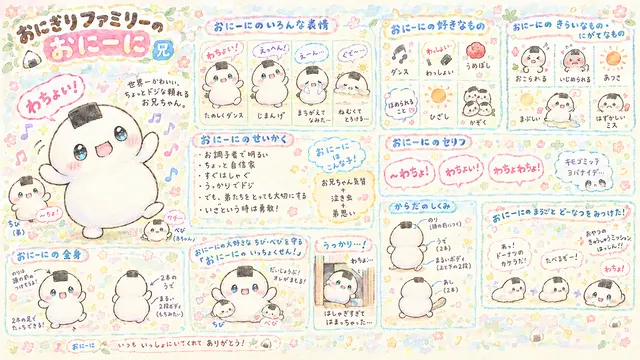 おにぎりファミリーの
おにーに 兄
世界一かわいい、
ちょっとドジな頼れる
お兄ちゃん。
わちょい!
～ちょ!
ちび
(弟)
べび
(赤ちゃん)
おにーに のいろんな表情
わちょい!
たのしくダンス
えっへん!
じまんげ
えーん…
まちがえて
なみだ…
ぐで～…
ねむくて
とろける…
おにーに の好きなもの
ダンス
わっしょい
うめぼし
ほめられる
こと
ひざし
かぞく
おにーに の きらいなもの・
にがてなもの
おこられる
いじめられる
あつさ
まぶしい
はずかしい
ミス
おにーに のせいかく
・お調子者で明るい
・ちょっと自信家
・すぐはしゃぐ
・うっかりでドジ
・でも、弟たちをとっても大切にする
・いざという時は勇敢!
おにーに は
こんな子!
お兄ちゃん気質
+
泣き虫
+
弟思い
おにーに のセリフ
～わちょ!
わちょい!
わちょわちょ!
キモゴミッテ
ヨバナイデ…
おにーに の 全身
2本の
うで
まるい
2段ボディ
(もちみたい)
2本の足で
たっちできる!
おにーに の大好きな ちび・べび を守る
「おにーに の いちょくせん!」
だいじょうぶ!
オレがまもる!
ちび
べび
うっかり…!
わちょ…
はしゃぎすぎて
はまっちゃった…
からだのしくみ
のり
うで
(2本)
まるいボディ
(上下の2段)
あし
(2本)
おにーに の まるごと どーなつをみつけた!
あっ!
ドーナツの
カケラだ!
たべるぞー!
おやつの
はっしん!!
わちょ!
おにーに
いつも いっしょにいてくれて ありがとう!